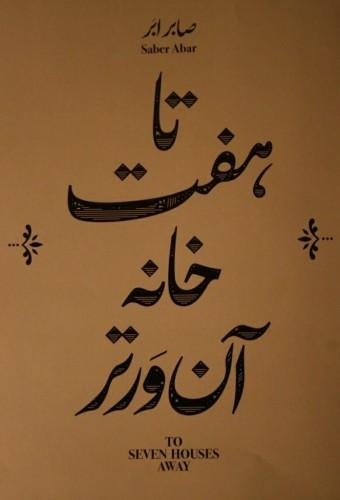 صابر ابَر
Saber Abar
تا
هفت
خانه
آن وَرتر
TO
SEVEN HOUSES
AWAY